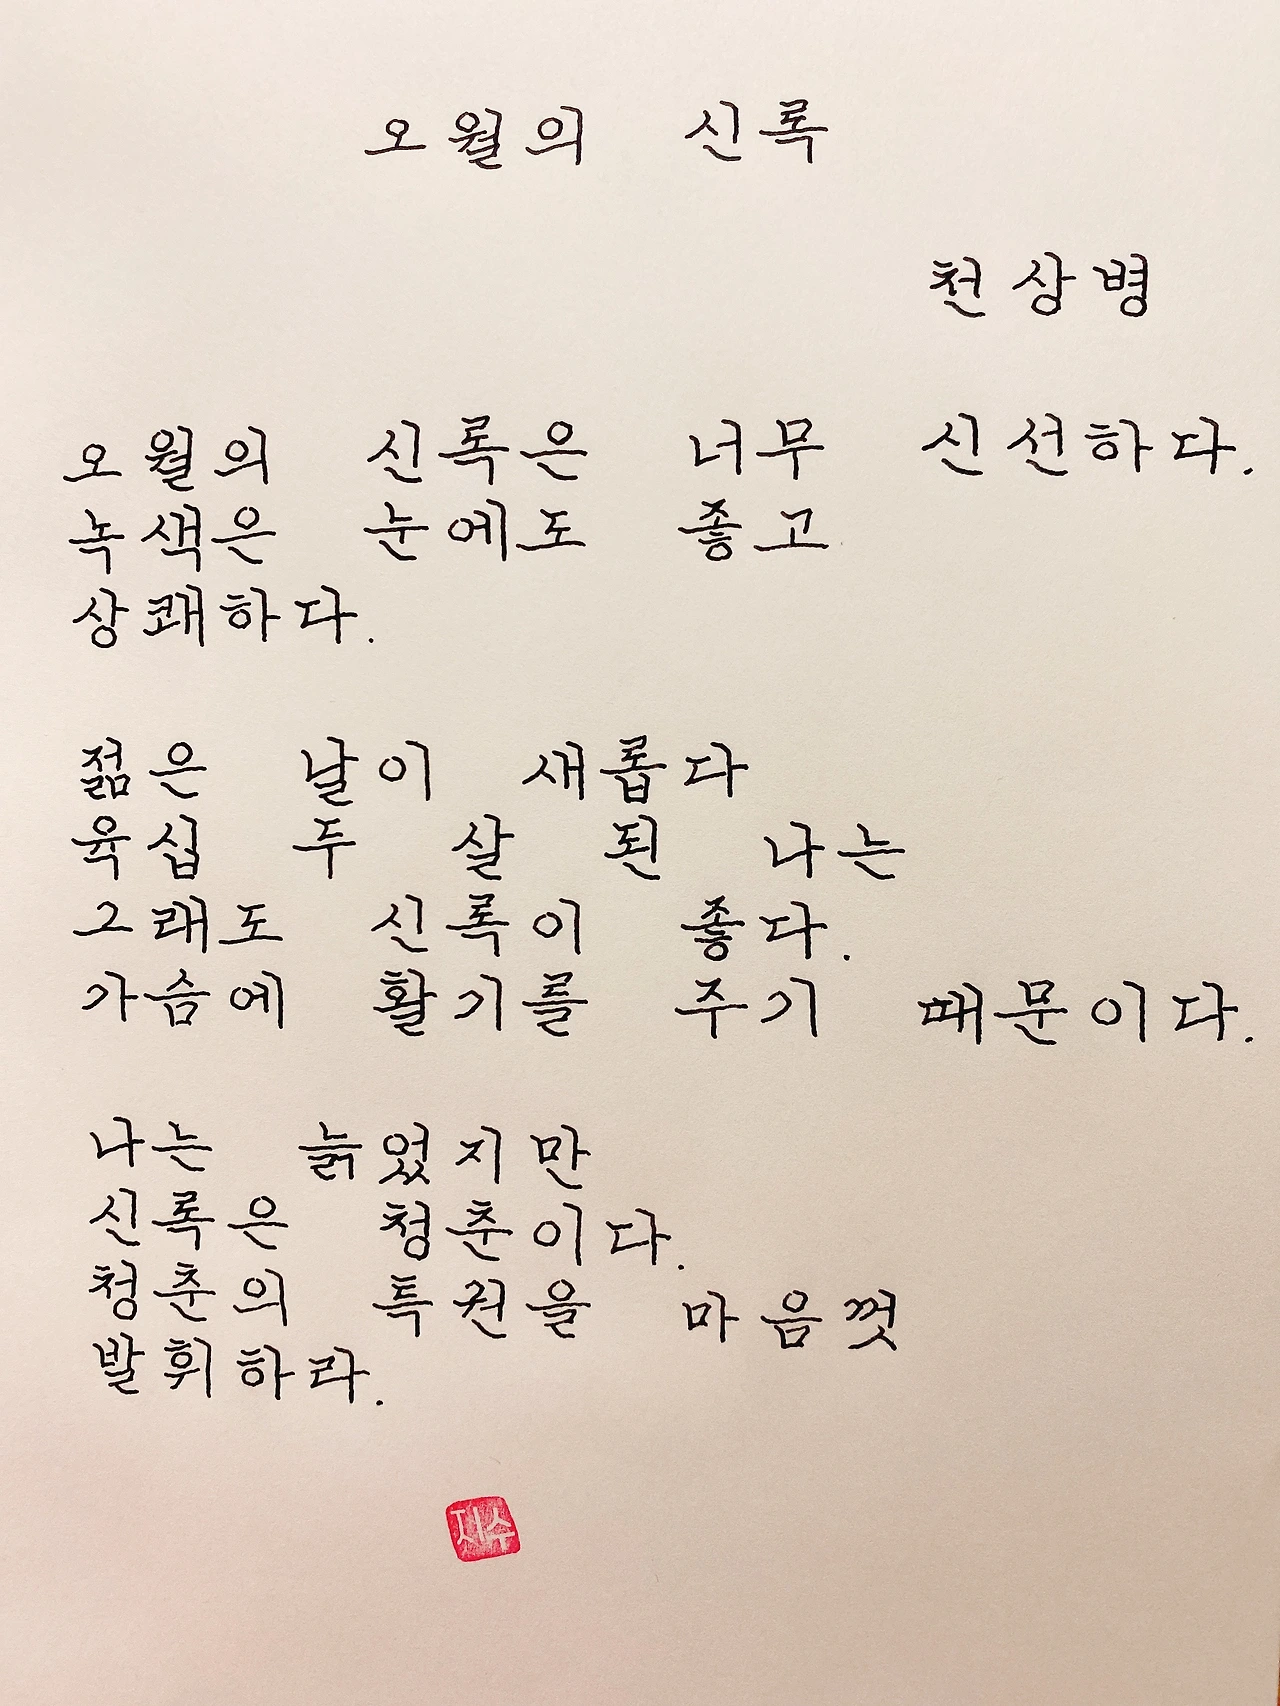 오월의 신록
천상병
오월의 신록은 너무 신선하다.
녹색은 눈에도 좋고
상쾌하다.
젊은 날이 새롭다
육십 두 살 된 나는
그래도 신록이 좋다.
가슴에 활기를 주기 때문이다.
나는 늙었지만
신록은 청춘이다.
청춘의 특권을 마음껏
발휘하라.
지수